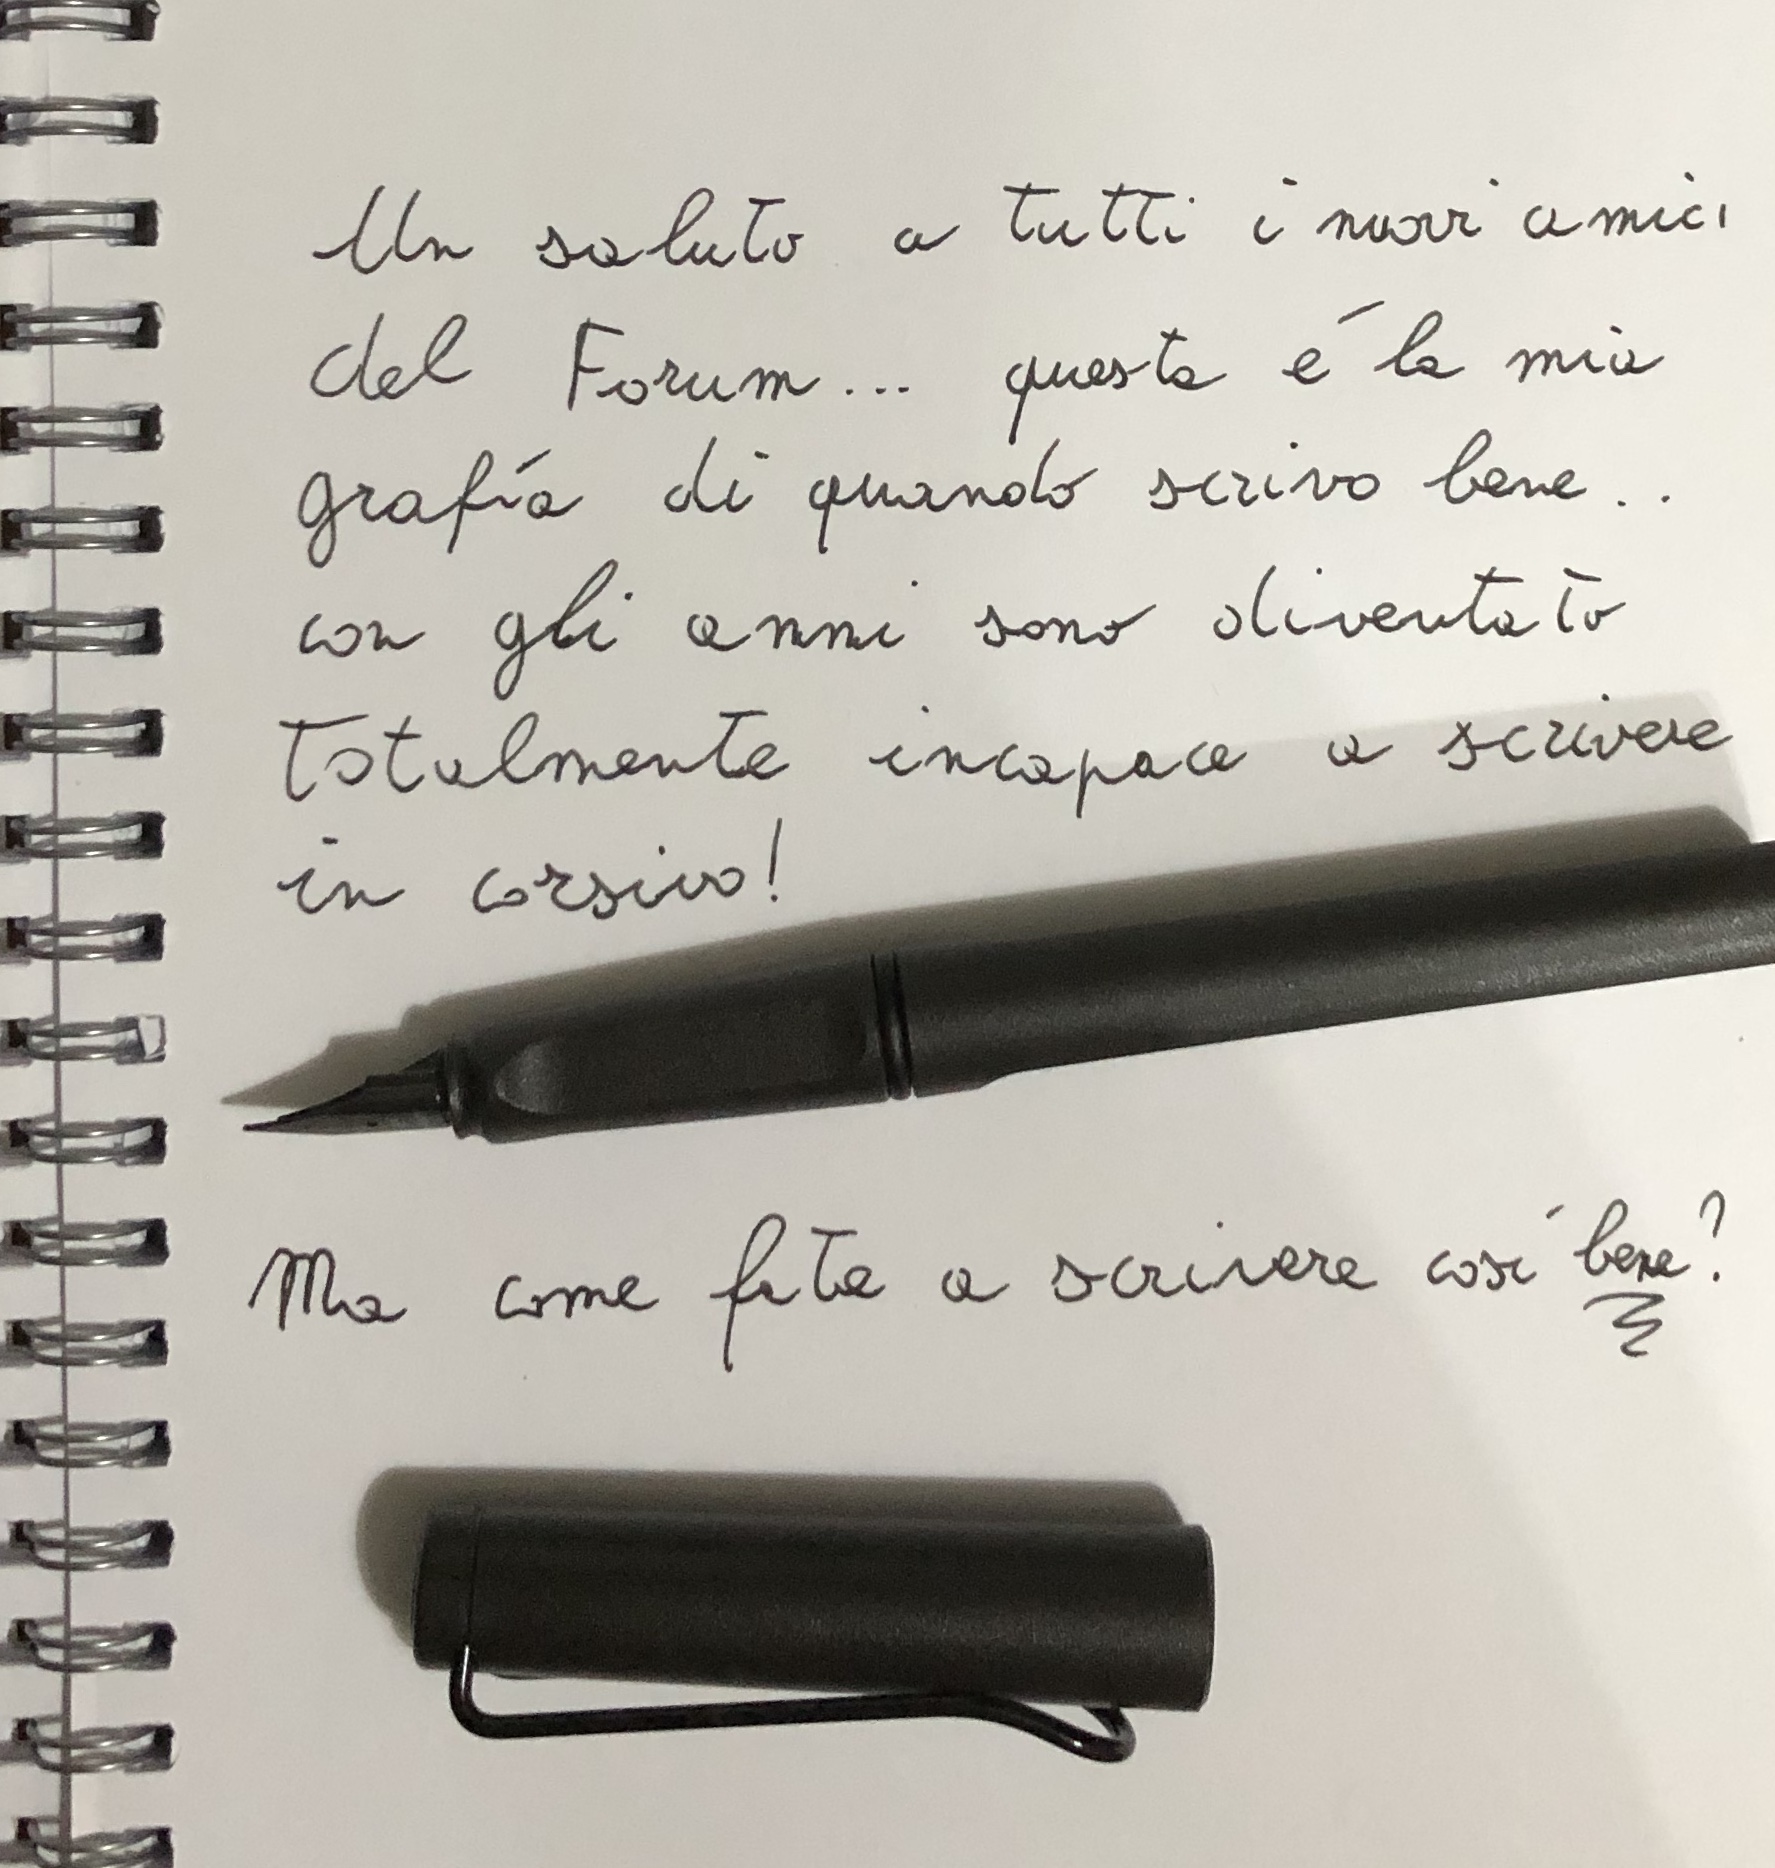 Un saluto a tutti i nuovi amici
del Forum... questa é la mia
grafía di quando scrivo bene..
con gli anni sono diventato
totalmente incapace a scrivere
in corsivo!
Ma come fate a scrivere così bene?